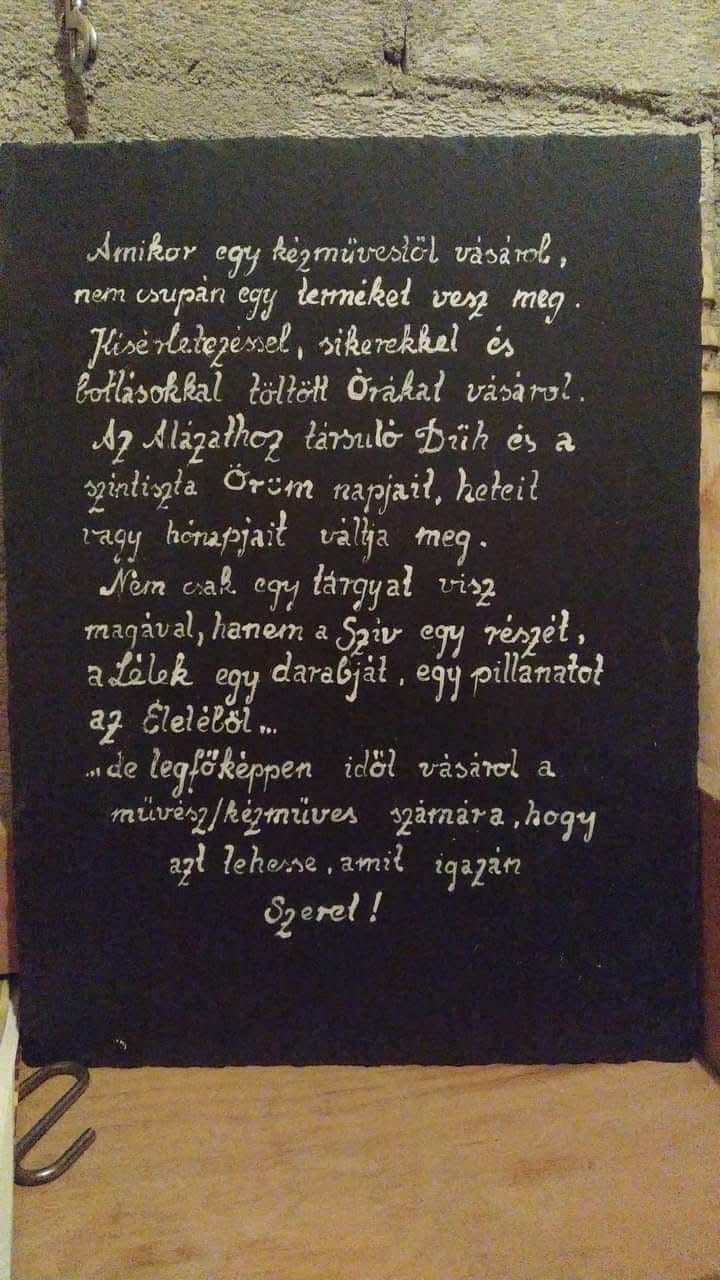 Amikor egy kézművestől vásárol,
nem csupán egy terméket vesz meg.
Kisérletezéssel, sikerekkel és
botlásokkal töltött Órákat vásárol.
Az Alázathoz társuló Düh és a
színtiszta Öröm napjait, heteit
vagy hónapjait váltja meg.
Nem csak egy tárgyat visz
magával, hanem a Szív egy részét,
a Lélek egy darabját, egy pillanatot
az Életéből...
...de legfőképpen időt vásárol a
művész/kézműves számára, hogy
azt tehesse, amit igazán
Szeret!